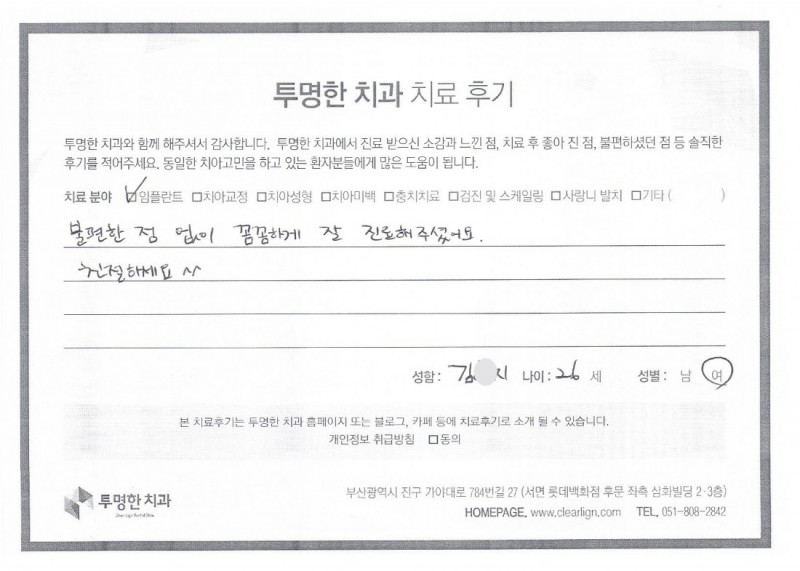 투명한 치과 치료 후기
투명한 치과와 함께 해주셔서 감사합니다. 투명한 치과에서 진료 받으신 소감과 느낀 점, 치료 후 좋아 진 점, 불편하셨던 점 등 솔직한
후기를 적어주세요. 동일한 치아고민을 하고 있는 환자분들에게 많은 도움이 됩니다.
치료 분야 ☑임플란트 □치아교정 □치아성형 □치아미백 □충치치료 □검진 및 스케일링 □사랑니 발치 □기타 ( )
불편한 점 없이 꼼꼼하게 잘 진료해주셨어요.
친절하세요 ^^
성함: 김 지 나이: 26 세 성별: 남 여
본 치료후기는 투명한 치과 홈페이지 또는 블로그, 카페 등에 치료후기로 소개 될 수 있습니다.
개인정보 취급방침 □동의
투명한 치과
부산광역시 진구 가야대로 784번길 27 (서면 롯데백화점 후문 좌측 심화빌딩 2·3층)
HOMEPAGE. www.clearlign.com TEL. 051-808-2842